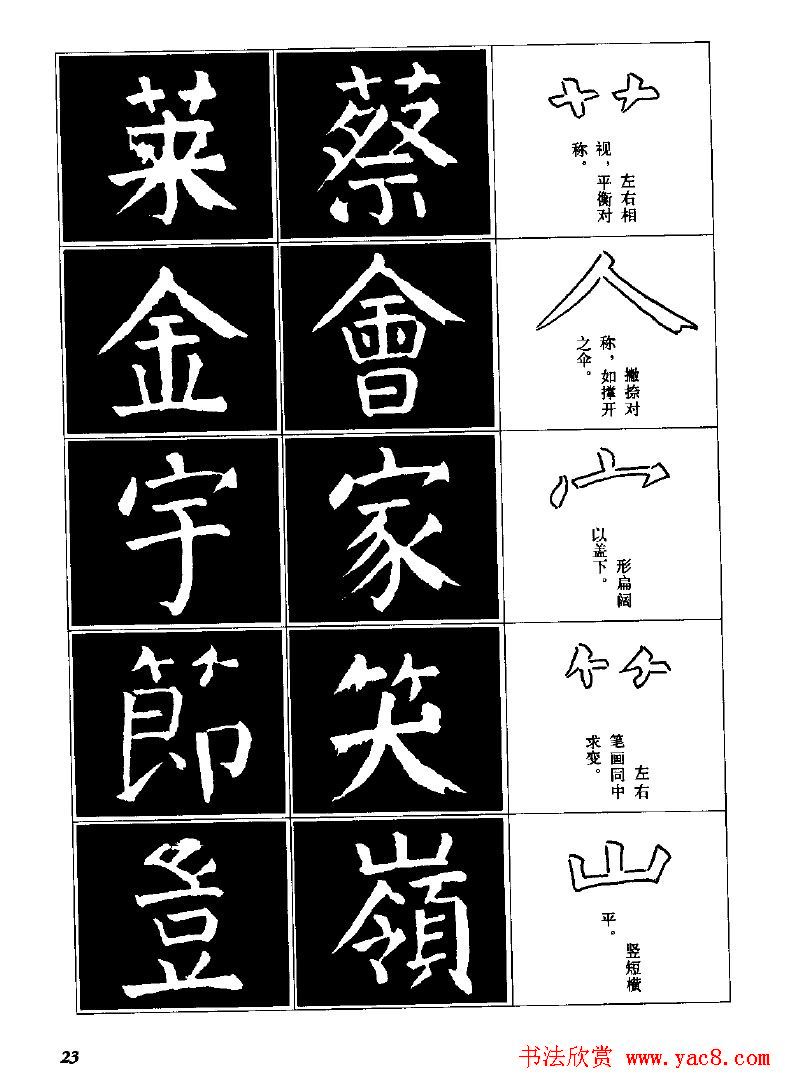 艹
左右相
视，平衡对
称。
蔡
莱
人
撇捺对
称，如撑开
之伞。
會
金
宀
形扁阔
以盖下。
家
宇
⺮
左右
笔画同中
求变。
笑
節
山
竖短横
平。
嶺
23
书法欣赏 www.yac8.com